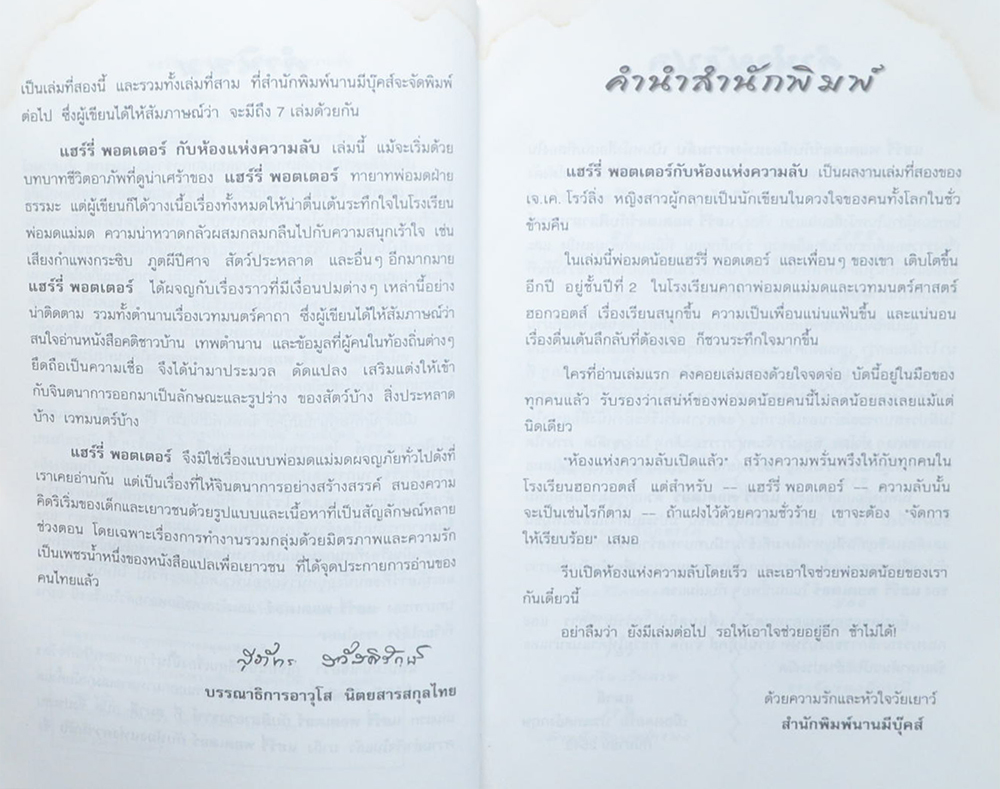 เป็นเล่มที่สองนี้ และรวมทั้งเล่มที่สาม ที่สำนักพิมพ์นานมีบุ๊คส์จะจัดพิมพ์
ต่อไป ซึ่งผู้เขียนได้ให้สัมภาษณ์ว่า จะมีถึง 7 เล่มด้วยกัน
แฮร์รี่ พอตเตอร์ กับห้องแห่งความลับ เล่มนี้ แม้จะเริ่มด้วย
บทบาทชีวิตอาภัพที่ดูน่าเศร้าของ แฮร์รี่ พอตเตอร์ ทายาทพ่อมดฝ่าย
ธรรมะ แต่ผู้เขียนก็ได้วางเนื้อเรื่องทั้งหมดให้น่าตื่นเต้นระทึกใจในโรงเรียน
พ่อมดแม่มด ความน่าหวาดกลัวผสมกลมกลืนไปกับความสนุกเร้าใจ เช่น
เสียงกำแพงกระซิบ ภูตผีปีศาจ สัตว์ประหลาด และอื่นๆ อีกมากมาย
แฮร์รี่ พอตเตอร์ ได้ผจญกับเรื่องราวที่มีเงื่อนปมต่างๆ เหล่านี้อย่าง
น่าติดตาม รวมทั้งตำนานเรื่องเวทมนตร์คาถา ซึ่งผู้เขียนได้ให้สัมภาษณ์ว่า
สนใจอ่านหนังสือคติชาวบ้าน เทพตำนาน และข้อมูลที่ผู้คนในท้องถิ่นต่างๆ
ยึดถือเป็นความเชื่อ จึงได้นำมาประมวล ดัดแปลง เสริมแต่งให้เข้า
กับจินตนาการออกมาเป็นลักษณะและรูปร่าง ของสัตว์บ้าง สิ่งประหลาด
บ้าง เวทมนตร์บ้าง
แฮร์รี่ พอตเตอร์ จึงมิใช่เรื่องแบบพ่อมดแม่มดผจญภัยทั่วไปดังที่
เราเคยอ่านกัน แต่เป็นเรื่องที่ให้จินตนาการอย่างสร้างสรรค์ สนองความ
คิดริเริ่มของเด็กและเยาวชนด้วยรูปแบบและเนื้อหาที่เป็นสัญลักษณ์หลาย
ช่วงตอน โดยเฉพาะเรื่องการทำงานรวมกลุ่มด้วยมิตรภาพและความรัก
เป็นเพชรน้ำหนึ่งของหนังสือแปลเพื่อเยาวชน ที่ได้จุดประกายการอ่านของ
คนไทยแล้ว
บรรณาธิการอาวุโส นิตยสารสกุลไทย
คำนำสำนักพิมพ์
แฮร์รี่ พอตเตอร์กับห้องแห่งความลับ เป็นผลงานเล่มที่สองของ
เจ.เค. โรว์ลิ่ง หญิงสาวผู้กลายเป็นนักเขียนในดวงใจของคนทั้งโลกในชั่ว
ข้ามคืน
ในเล่มนี้พ่อมดน้อยแฮร์รี่ พอตเตอร์ และเพื่อนๆ ของเขา เติบโตขึ้น
อีกปี อยู่ชั้นปีที่ 2 ในโรงเรียนคาถาพ่อมดแม่มดและเวทมนตร์ศาสตร์
ฮอกวอตส์ เรื่องเรียนสนุกขึ้น ความเป็นเพื่อนแน่นแฟ้นขึ้น และแน่นอน
เรื่องตื่นเต้นลึกลับที่ต้องเจอ ก็ชวนระทึกใจมากขึ้น
ใครที่อ่านเล่มแรก คงคอยเล่มสองด้วยใจจดจ่อ บัดนี้อยู่ในมือของ
ทุกคนแล้ว รับรองว่าเสน่ห์ของพ่อมดน้อยคนนี้ไม่ลดน้อยลงเลยแม้แต่
นิดเดียว
"ห้องแห่งความลับเปิดแล้ว" สร้างความพรั่นพรึงให้กับทุกคนใน
โรงเรียนฮอกวอตส์ แต่สำหรับ -- แฮร์รี่ พอตเตอร์ -- ความลับนั้น
จะเป็นเช่นไรก็ตาม -- ถ้าแฝงไว้ด้วยความชั่วร้าย เขาจะต้อง "จัดการ
ให้เรียบร้อย" เสมอ
รีบเปิดห้องแห่งความลับโดยเร็ว และเอาใจช่วยพ่อมดน้อยของเรา
กันเดี๋ยวนี้
อย่าลืมว่า ยังมีเล่มต่อไป รอให้เอาใจช่วยอยู่อีก ช้าไม่ได้!
ด้วยความรักและหัวใจวัยเยาว์
สำนักพิมพ์นานมีบุ๊คส์